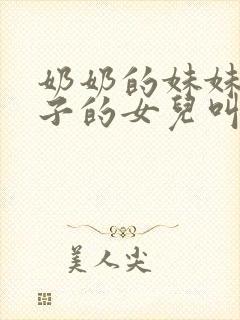 奶奶的妹妹
子的女兒叫
美人尖